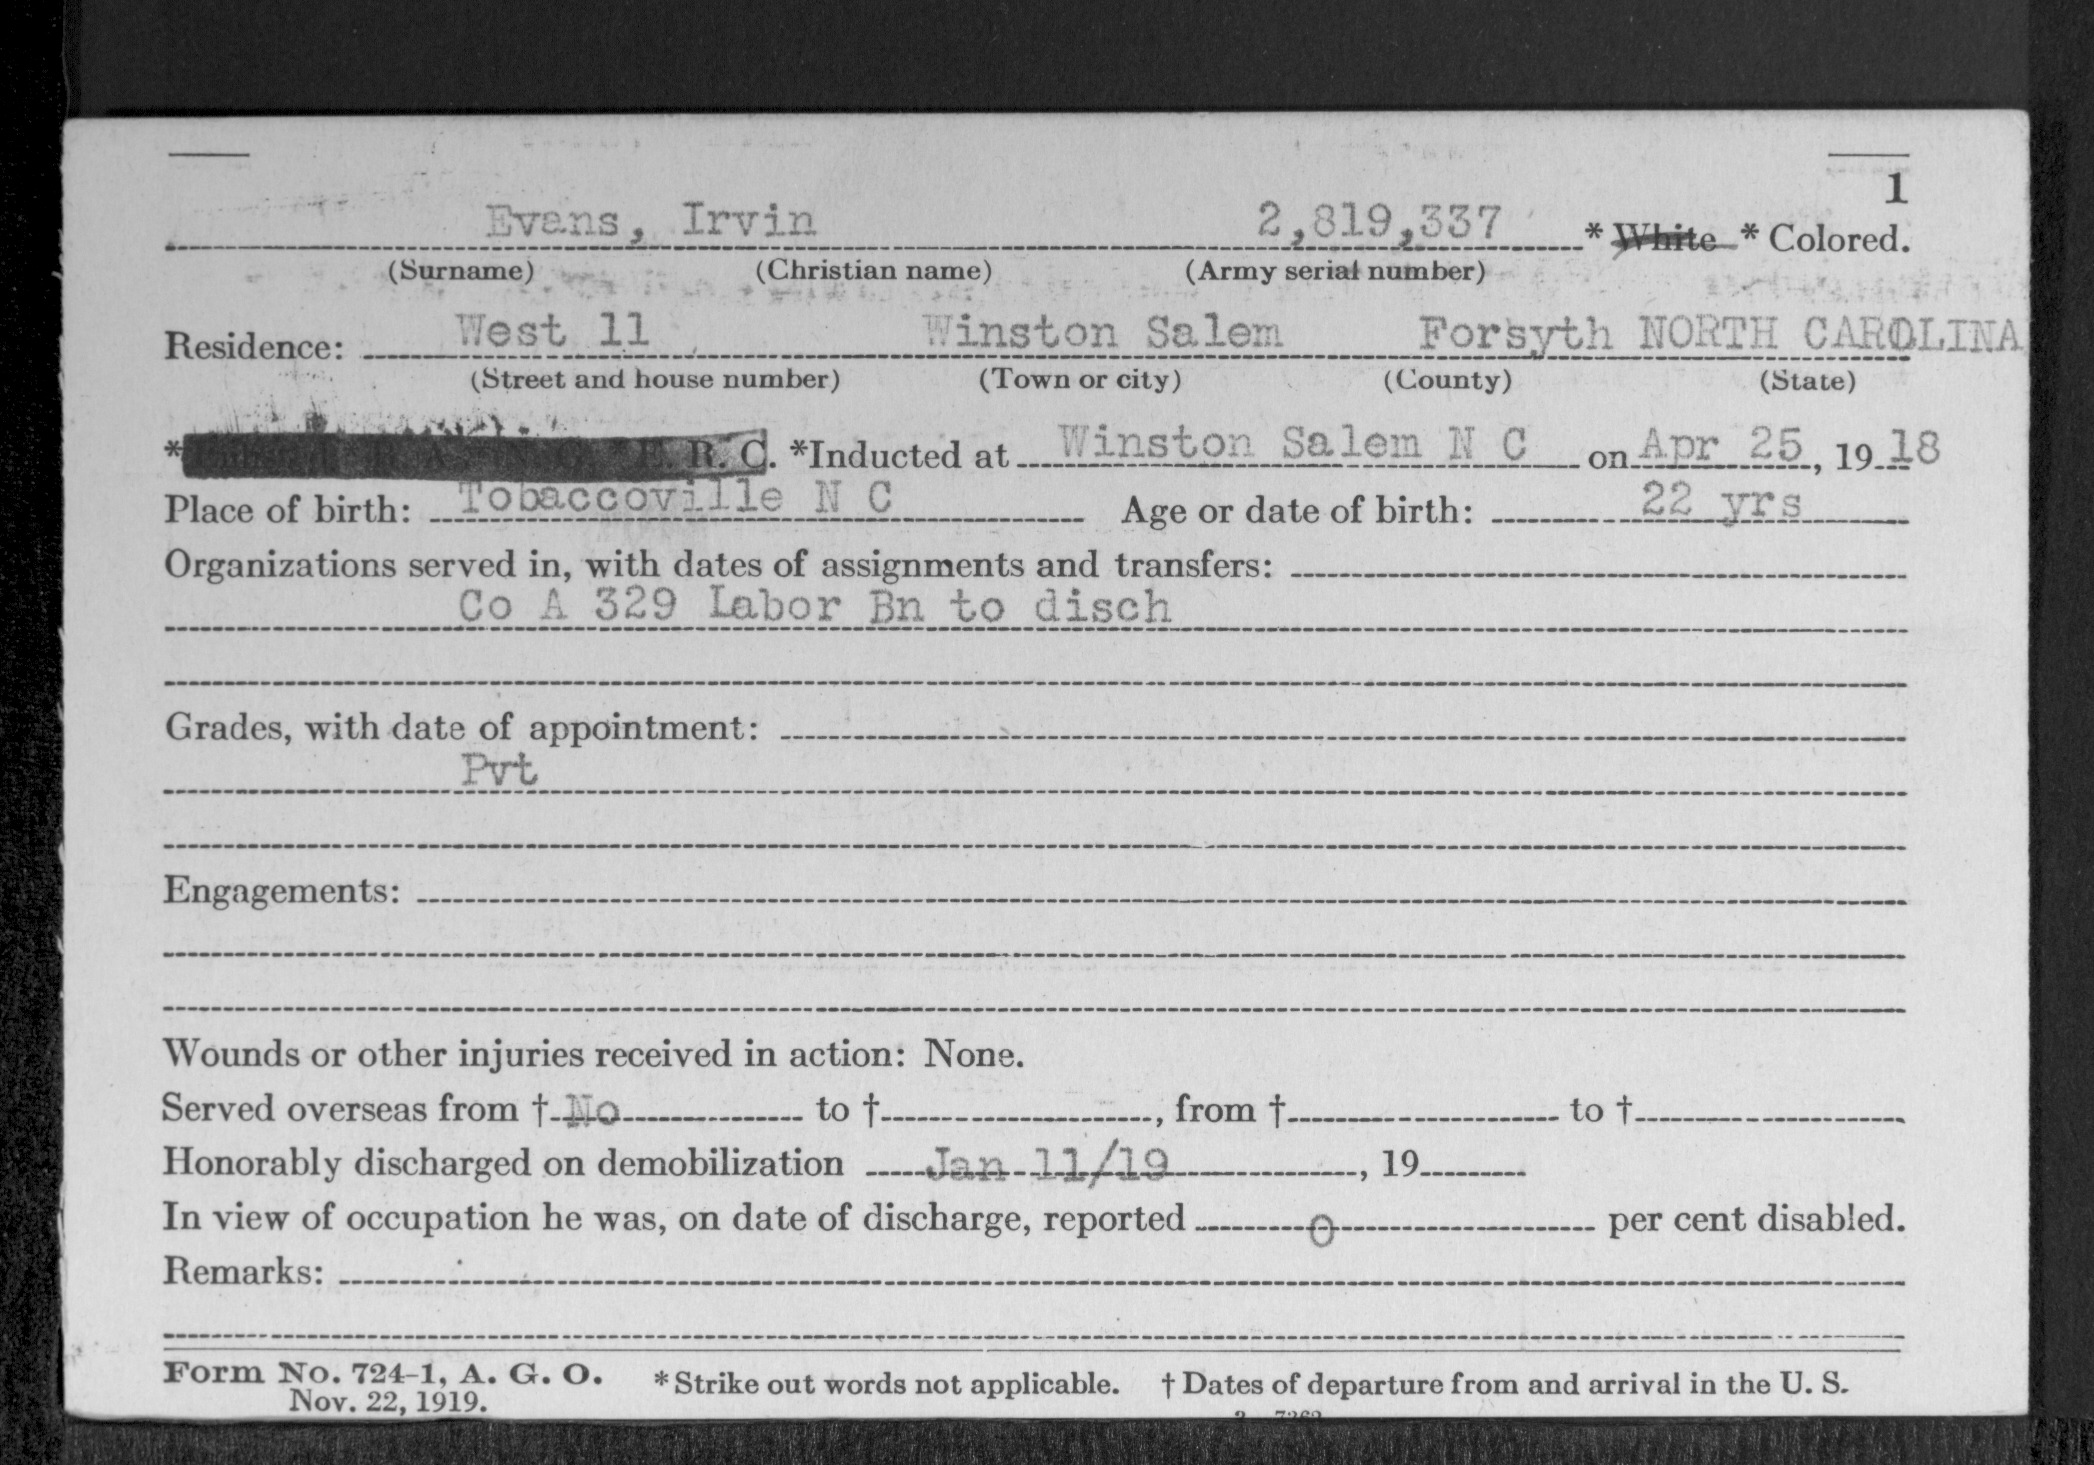 1
Evans, Irvin 2,819,337 * White * Colored.
(Surname) (Christian name) (Army serial number)
Residence: West 11 Winston Salem Forsyth NORTH CAROLINA
(Street and house number) (Town or city) (County) (State)
* E. R. C. *Inducted at Winston Salem N C on Apr 25, 19 18
Place of birth: Tobaccoville N C Age or date of birth: 22 yrs
Organizations served in, with dates of assignments and transfers:
Co A 329 Labor Bn to disch
Grades, with date of appointment:
Pvt
Engagements:
Wounds or other injuries received in action: None.
Served overseas from † No to †, from † to †
Honorably discharged on demobilization Jan 11/19, 19
In view of occupation he was, on date of discharge, reported 0 per cent disabled.
Remarks:
Form No. 724-1, A. G. O. * Strike out words not applicable. † Dates of departure from and arrival in the U. S.
Nov. 22, 1919.